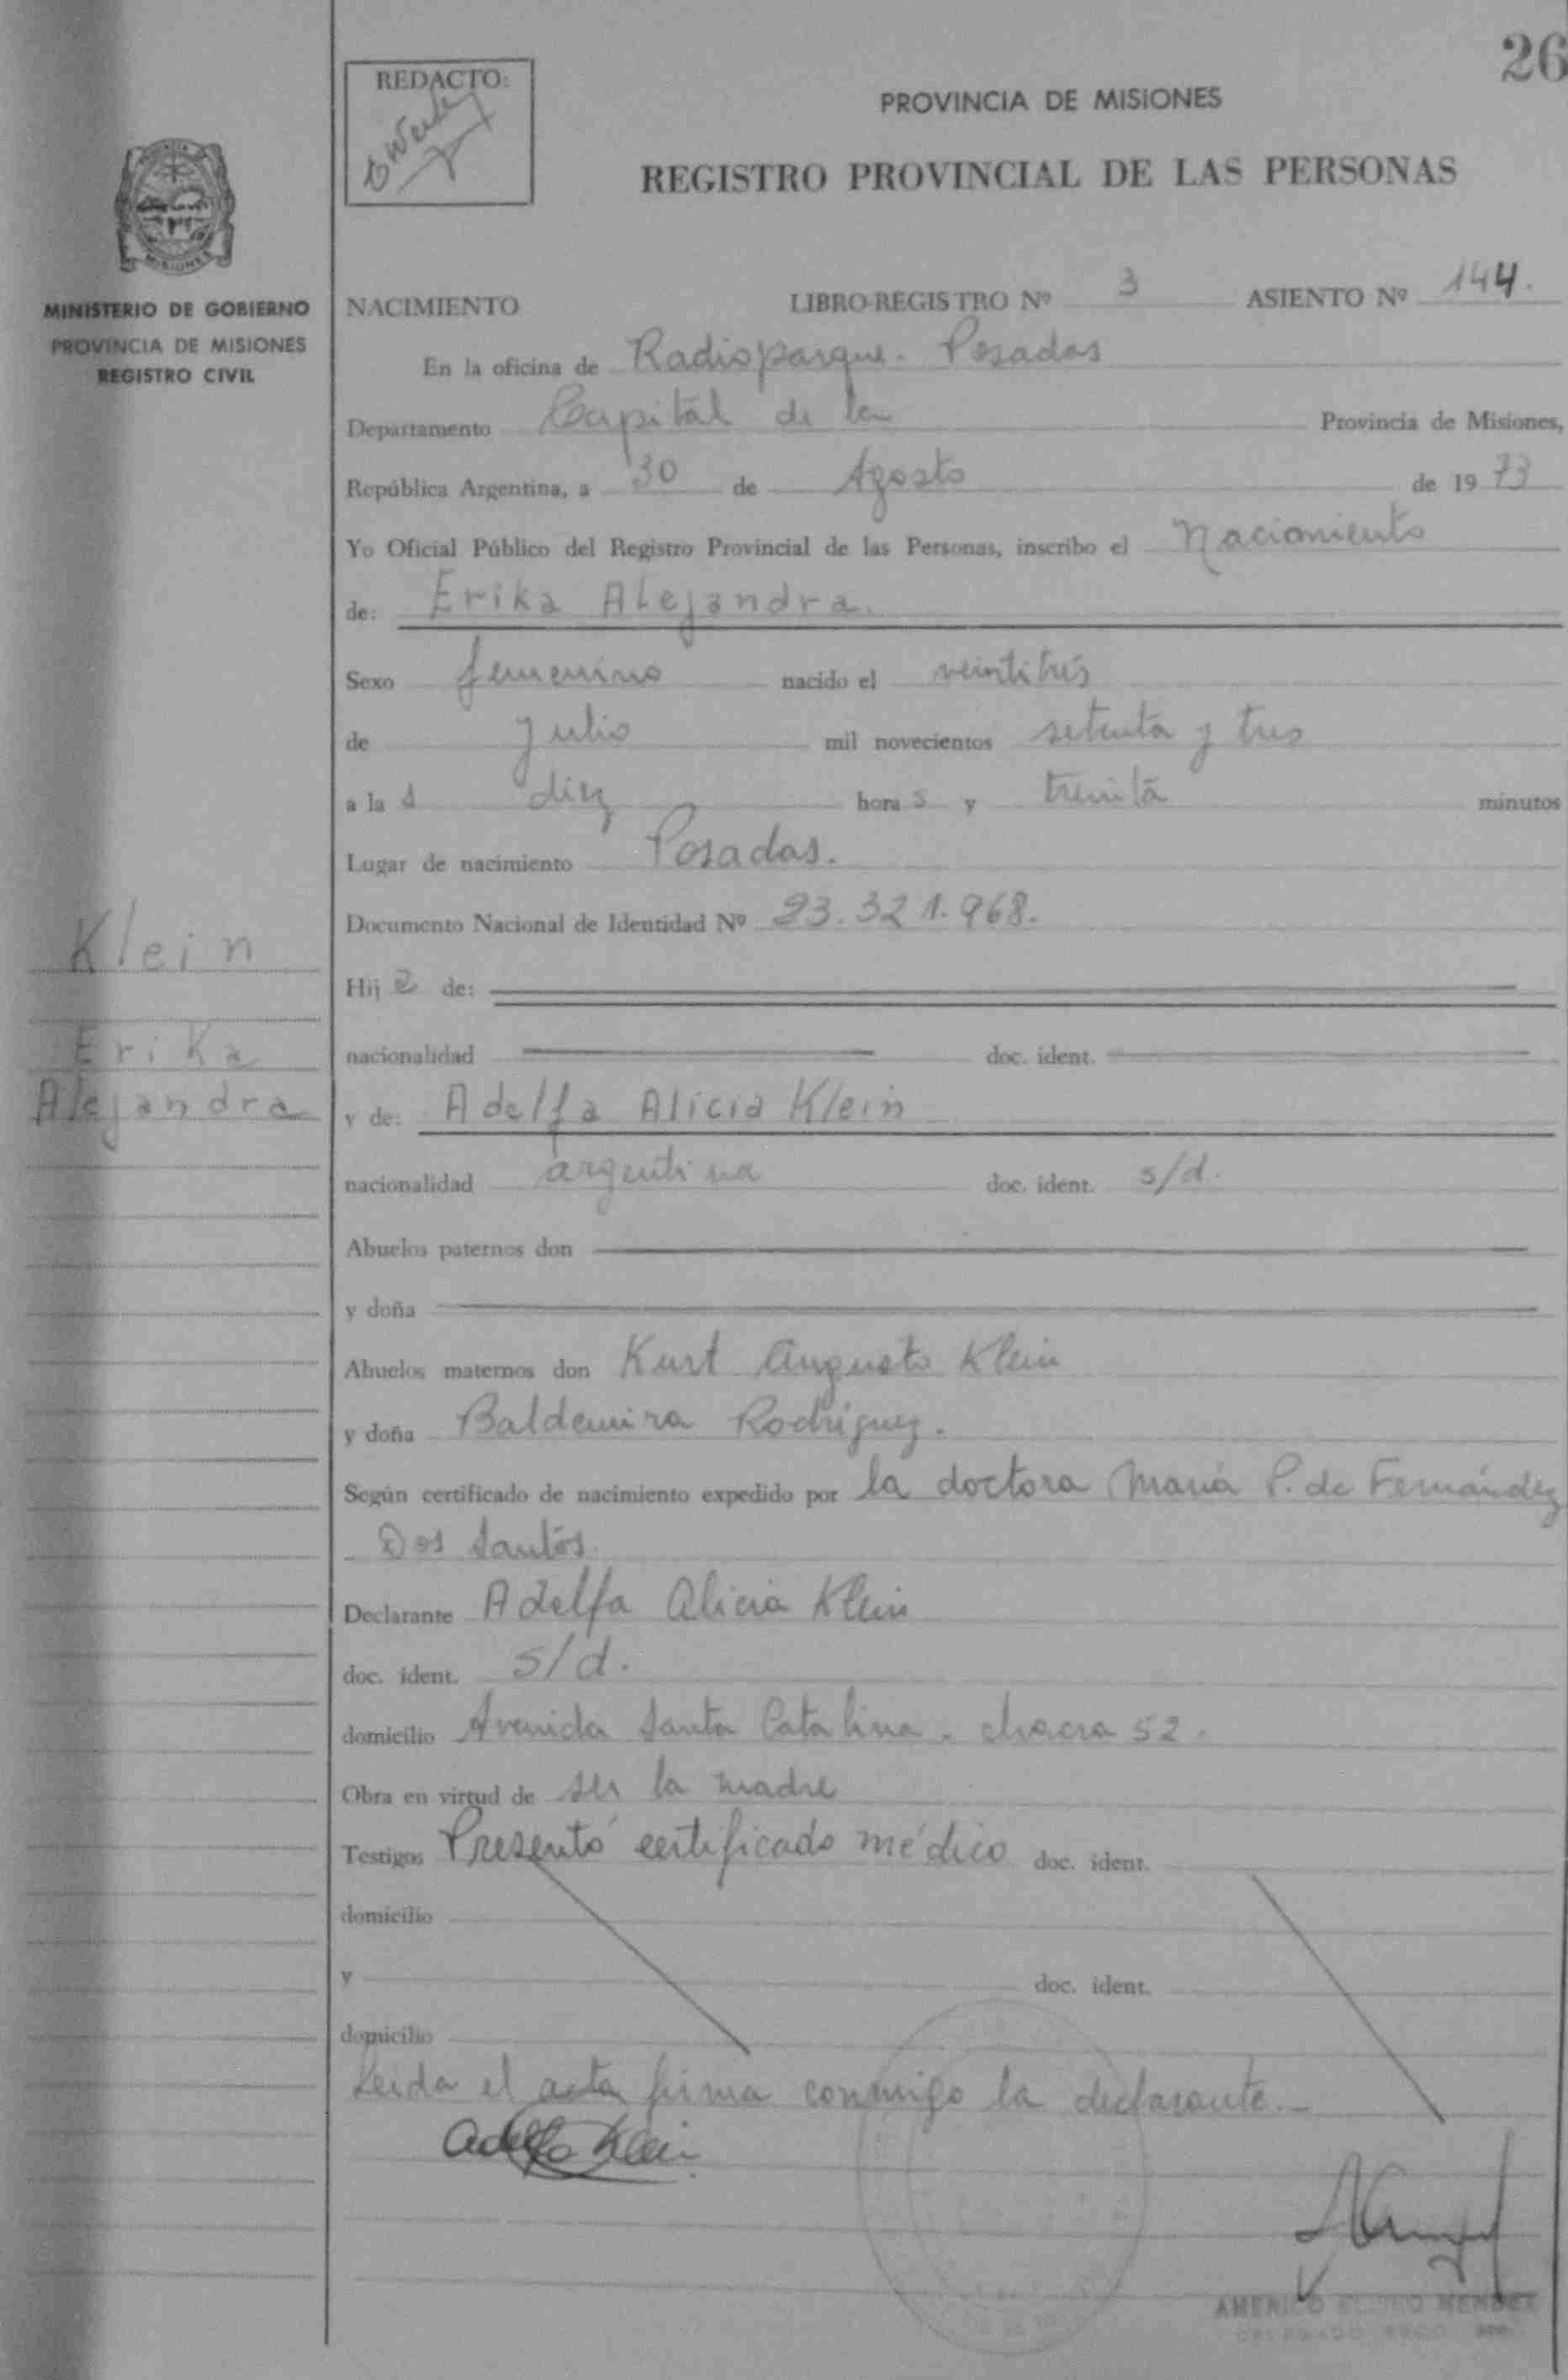 26
REDACTO:
PROVINCIA DE MISIONES
REGISTRO PROVINCIAL DE LAS PERSONAS
MISIONES
MINISTERIO DE GOBIERNO
PROVINCIA DE MISIONES
REGISTRO CIVIL
NACIMIENTO LIBRO-REGISTRO Nº 3 ASIENTO Nº 144.
En la oficina de Radioparque - Posadas
Departamento Capital de la Provincia de Misiones,
República Argentina, a 30 de Agosto de 1973
Yo Oficial Público del Registro Provincial de las Personas, inscribo el nacimiento
de: Erika Alejandra.
Sexo femenino nacido el veintitrés
de Julio mil novecientos setenta y tres
a la s diez hora s y treinta minutos
Lugar de nacimiento Posadas.
Documento Nacional de Identidad Nº 23.321.968.
Klein
Erika
Alejandra
Hij a de:
nacionalidad doc. ident.
y de: Adelfa Alicia Klein
nacionalidad argentina doc. ident. s/d.
Abuelos paternos don
y doña
Abuelos maternos don Kurt Augusto Klein
y doña Baldemira Rodriguez.
Según certificado de nacimiento expedido por la doctora María P. de Fernández
Dos Santos.
Declarante Adelfa Alicia Klein
doc. ident. s/d.
domicilio Avenida Santa Catalina - chacra 52.
Obra en virtud de ser la madre
Testigos Presentó certificado médico doc. ident.
domicilio
y doc. ident.
domicilio
Leida el acta firma conmigo la declarante.-
Adelfa Klein
AMERICO MENDEZ
DELEGADO